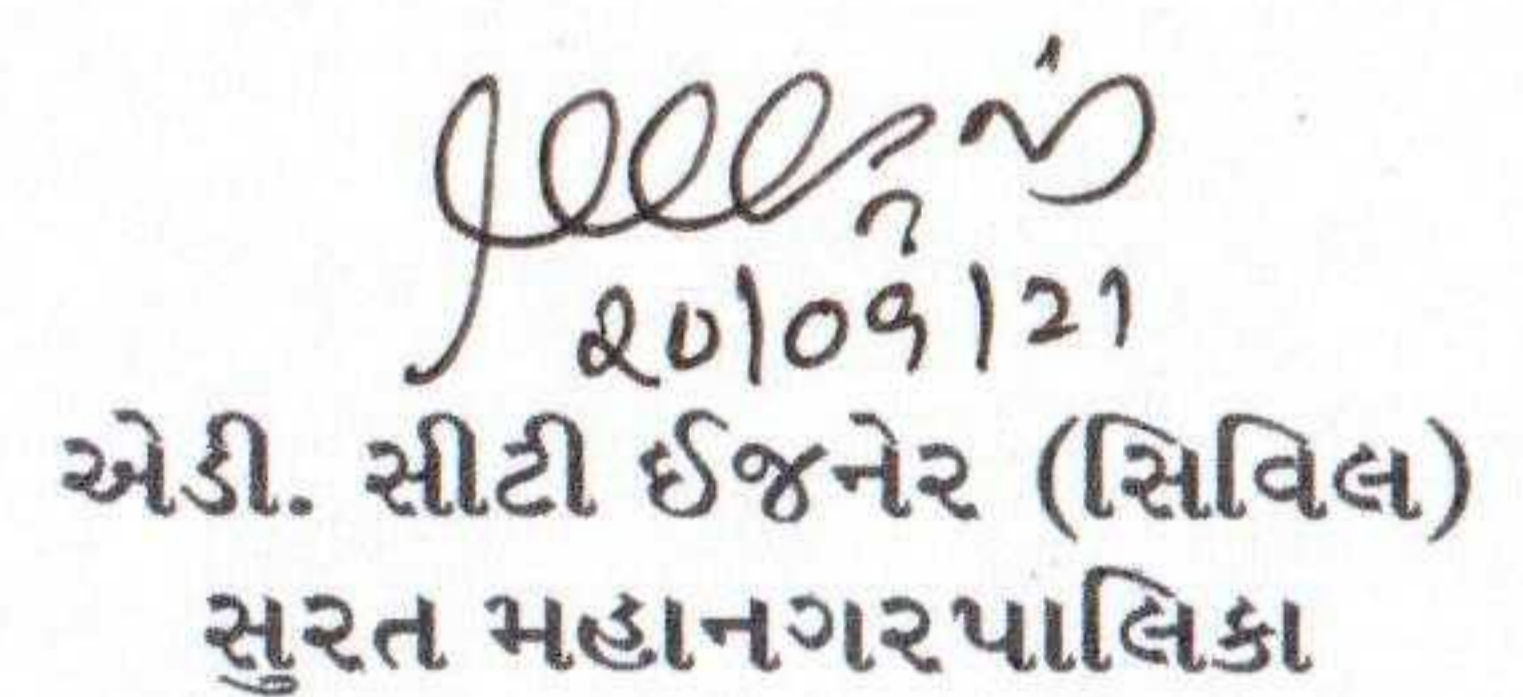 20/09/21
એડી. સીટી ઈજનેર (સિવિલ)
સુરત મહાનગરપાલિકા